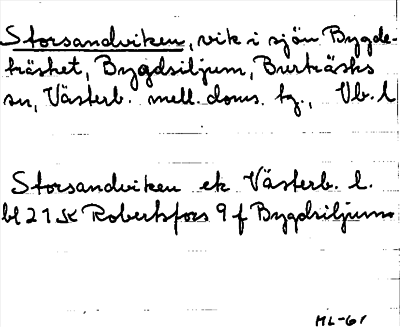 Storsandviken, vik i sjön Bygde-
träsket, Bygdsiljum, Burträsks
sn, Västerb. mell. doms. tg., Vb. l
Storsandviken ek Västerb. l.
bl 21 SK Robertsfors 9 f Bygdsiljum
ML-61